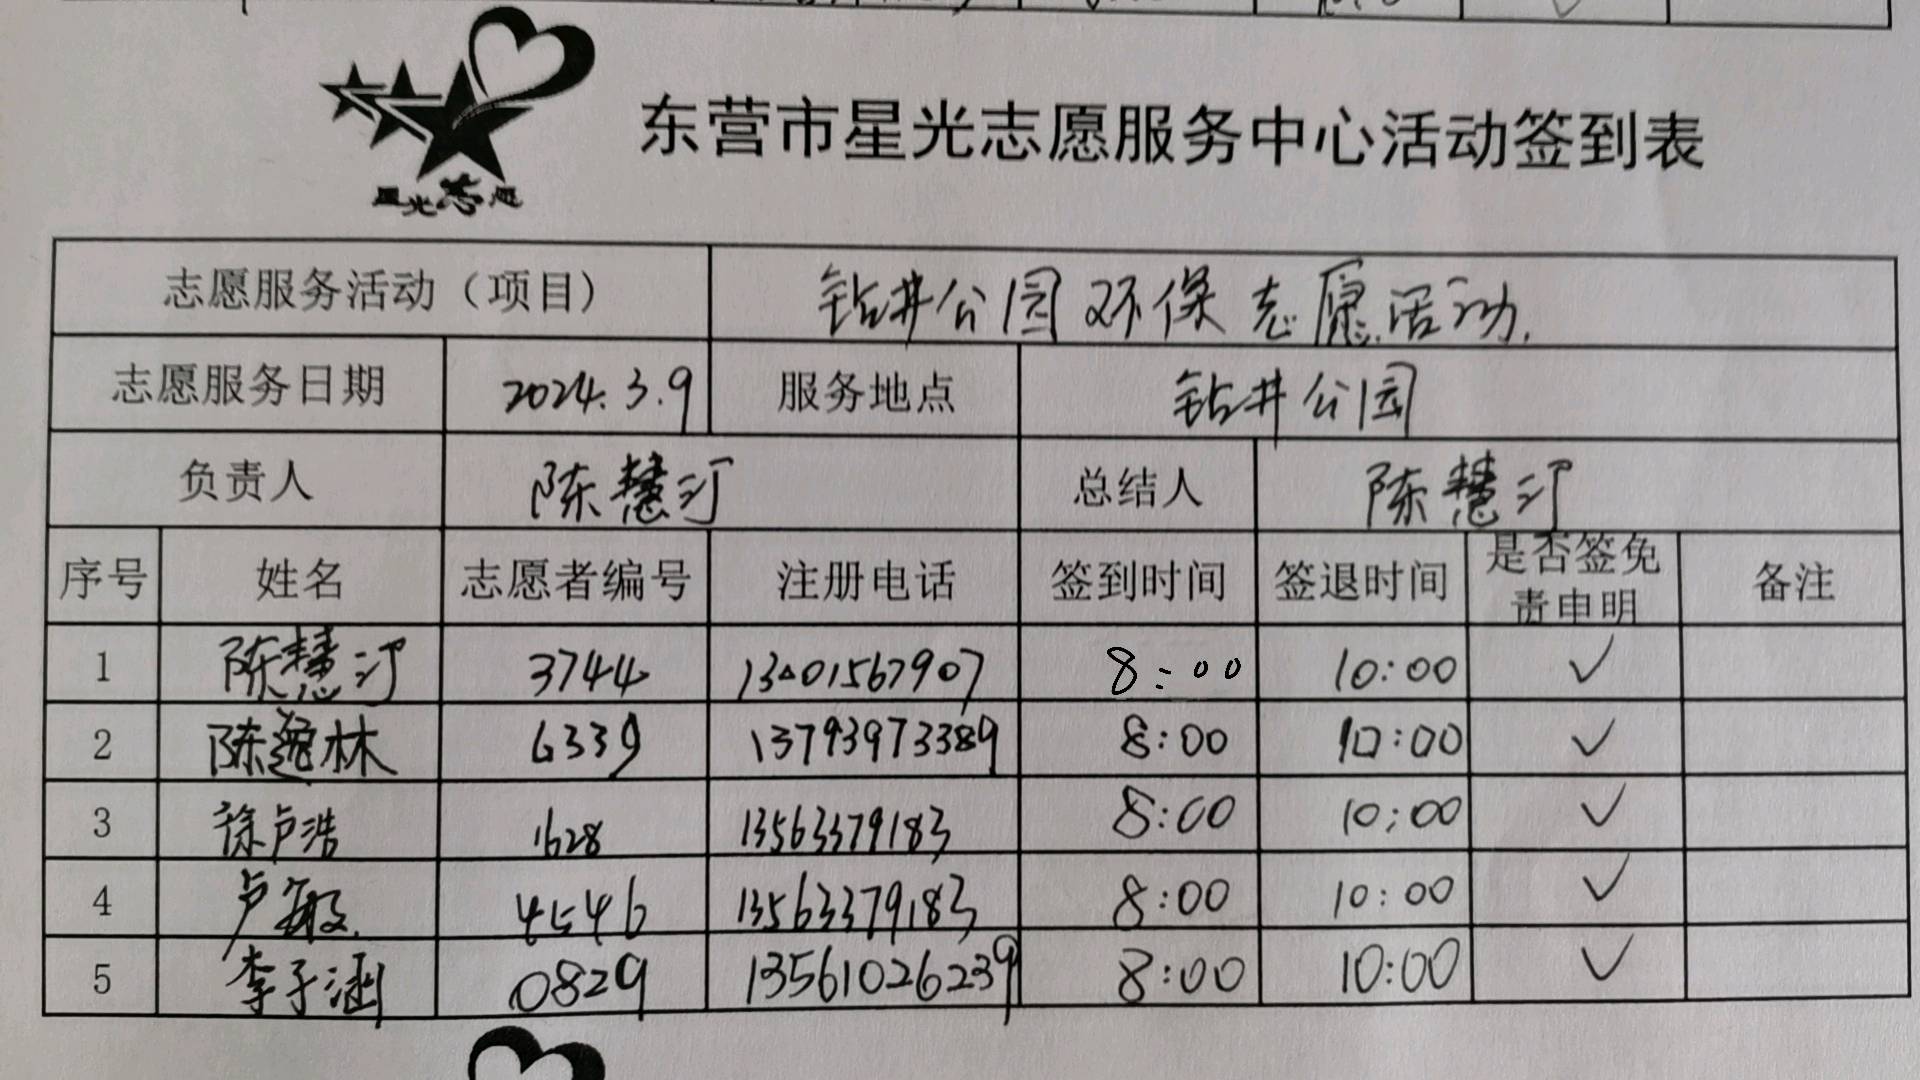 星光志愿
东营市星光志愿服务中心活动签到表
志愿服务活动（项目） 钻井公园环保志愿活动.
志愿服务日期 2024.3.9 服务地点 钻井公园
负责人 陈慧汀 总结人 陈慧汀
序号 姓名 志愿者编号 注册电话 签到时间 签退时间 是否签免责申明 备注
1 陈慧汀 3744 8:00 10:00 ✓
2 陈逸林 6339 13793973389 8:00 10:00 ✓
3 徐卢浩 1628 13563379183 8:00 10:00 ✓
4 卢敏 4546 13563379183 8:00 10:00 ✓
5 李子涵 0829 13561026239 8:00 10:00 ✓